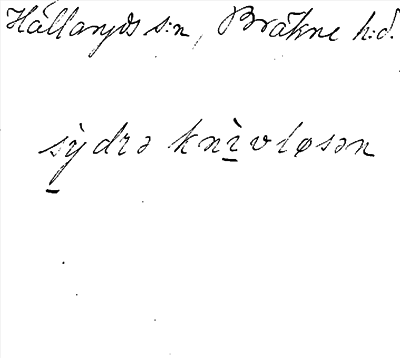 Hällaryds s:n, Bräkne h:d.
sỳ̠drə knì̠vløsən